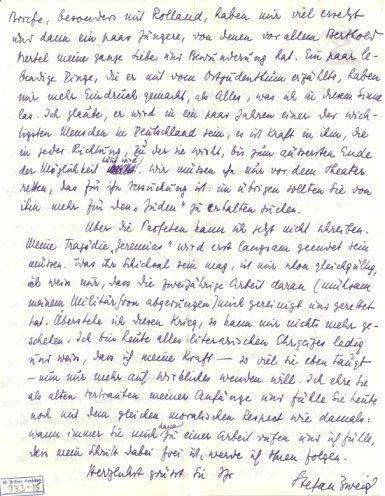 Briefe, besonders mit Rolland, haben mir viel ersetzt
und dann ein paar Jüngere, von denen vor allem Berthold
Viertel meine ganze Liebe und Bewunderung hat. Ein paar le-
bendige Dinge, die er mit vom Ostjudentum erzählte, haben
mir mehr Eindruck gemacht, als Alles, was ich in diesem Sinne
las. Ich glaube, er wird in ein paar Jahren einer der wich-
tigsten Menschen in Deutschland sein, es ist Kraft in ihm, die
in jeder Richtung, zu der sie wirkt, bis zum äussersten Ende
der Möglichkeit wird. Wir müssen ihn nur vor dem Theater
retten, das für ihn Versuchung ist: im übrigen sollten Sie von
ihm mehr für den „Juden" zu erhalten suchen.
Über die Profeten kann ich jetzt nicht schreiben.
Meine Tragödie „Jeremias" wird erst langsam geendet sein
müssen. Was ihr Schicksal sein mag, ist mir schon gleichgültig,
ich weiss nur, dass die zweijährige Arbeit daran (mühsam
meinem Militär abgerungen) mich gereinigt und gerettet
hat. Überstehe ich diesen Krieg, so kann mir nichts mehr ge-
schehen. Ich bin heute alles literarischen Ehrgeizes ledig
und weiss, dass ich meine Kraft – so viel sie eben taugt
– nun nur mehr auf wirkliches wenden will. Ich ehre Sie
als alten Vertrauten meiner Anfänge und fühle Sie heute
noch mit dem gleichen moralischen Respect wie damals:
wann immer Sie mich dann zu einer Arbeit rufen und ich fühle,
dass mein Schritt dabei frei ist, werde ich Ihnen folgen.
Herzlichst grüsst Sie Ihr
Stefan Zweig
933-15